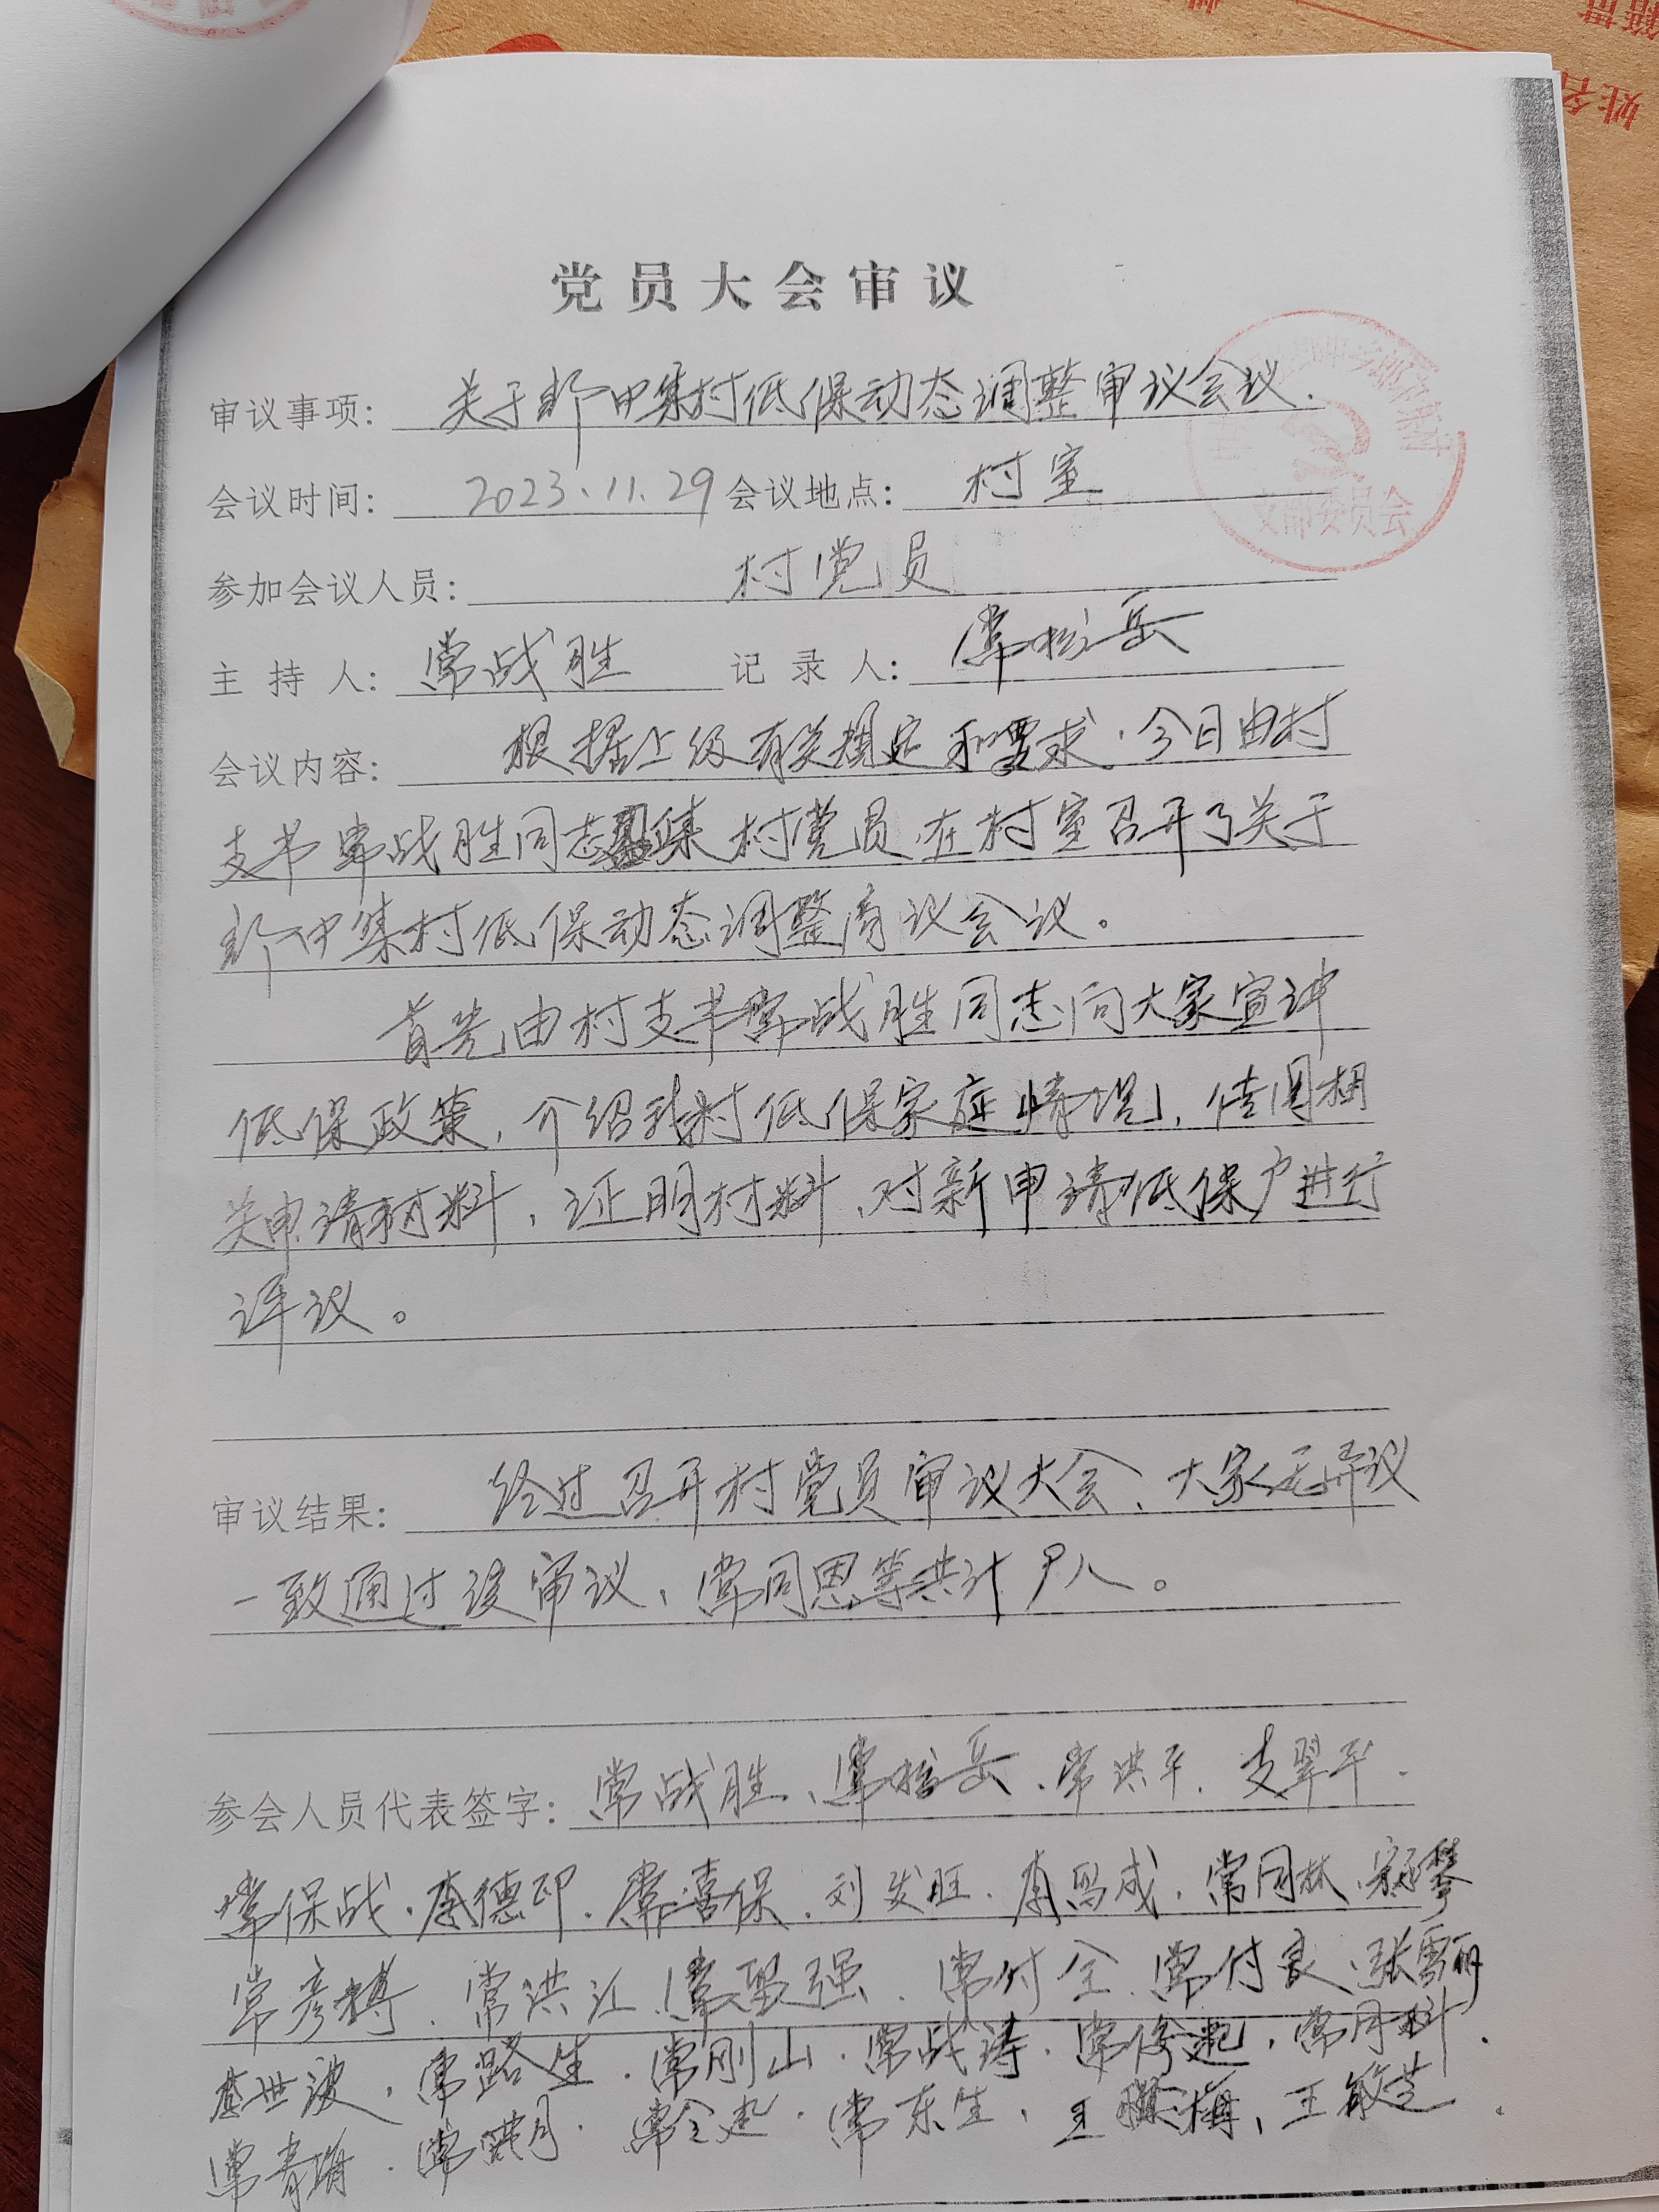 党员大会审议
审议事项: 关于郎中集村低保动态调整审议会议.
会议时间: 2023.11.29 会议地点: 村室
支部委员会
参加会议人员: 村党员
主持人: 常战胜 记录人: 常松岳
会议内容: 根据上级有关规定和要求.今日由村
支书常战胜同志召集村党员在村室召开了关于
郎中集村低保动态调整商议会议。
首先由村支书常战胜同志向大家宣讲
低保政策,介绍我村低保家庭情况,传阅相
关申请材料,证明材料,对新申请低保户进行
评议。
审议结果: 经过召开村党员审议大会、大家无异议
一致通过该审议,常同恩等共计 户 人。
参会人员代表签字: 常战胜、常松岳、常洪平.支翠平.
常保战.李德印.常喜保.刘发旺.常同林.
常彦博.常洪江.常聚强.常付全.常付良.张雪丽
世波,常路生.常刚山.常战涛.常俊起,常同科.
常青海.常东生,王敏芝.
姓名